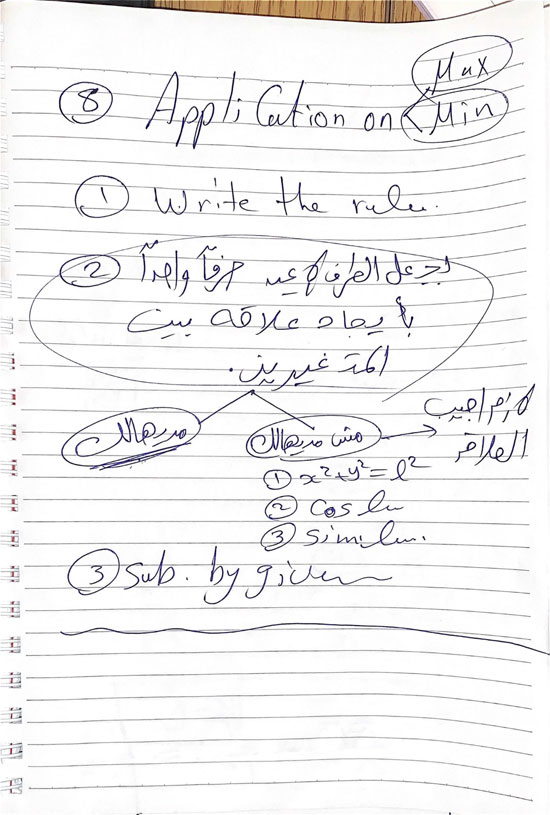 Max
⑧ Application on < Min
① Write the rule.
② نجعل الطرف الأيمن حرفاً واحداً
بأيجاد علاقة بين
المتغيرين.
مديهالك
مش مديهالك → لازم اجيب
العلاقة
① x²+y²=l²
② Cos law
③ similar.
③ Sub. by given